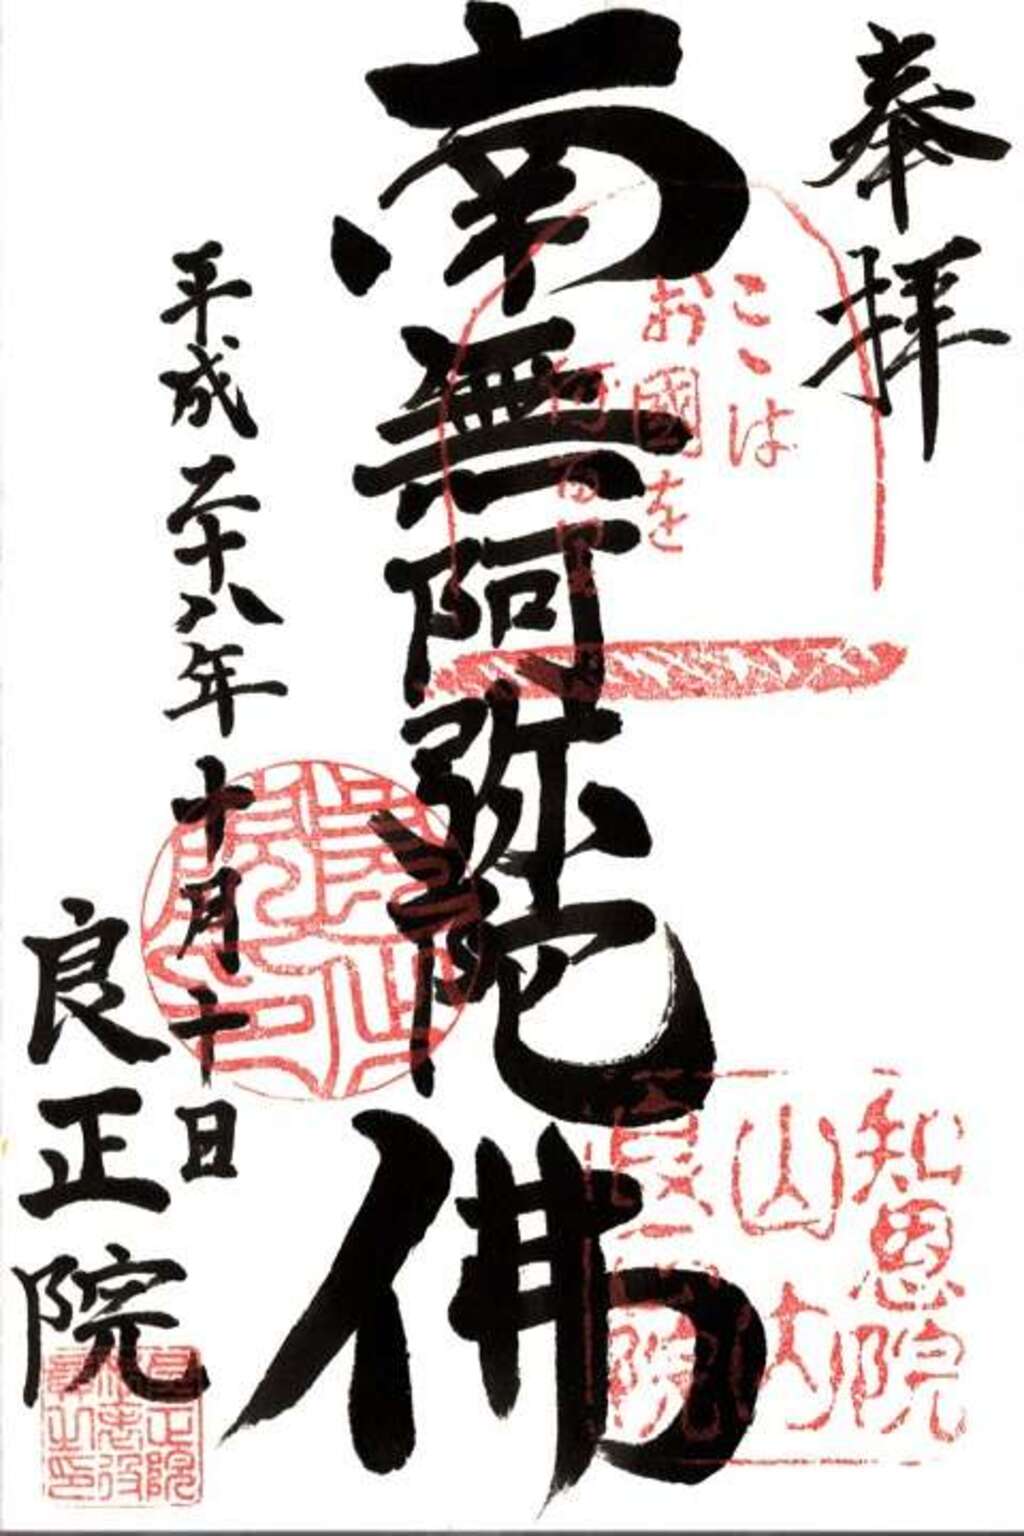 奉拝
南無阿弥陀佛
平成二十八年十月十日
良正院
こゝは
お國を
何百里
知恩院
山内
良正院